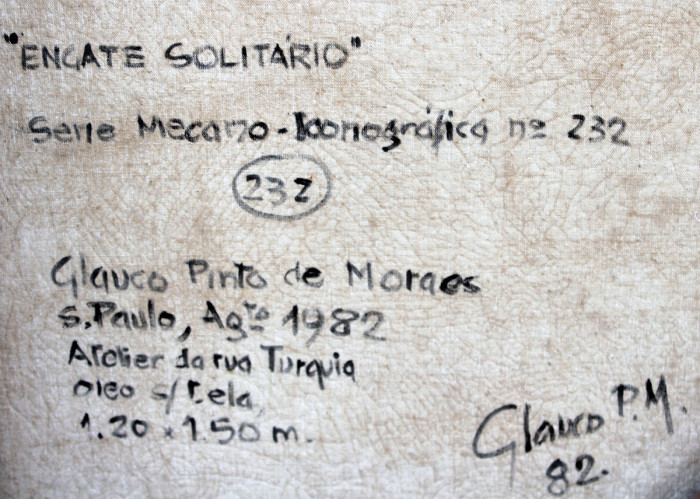 "ENGATE SOLITÁRIO"
Serie Mecano-Iconográfica nº 232
232
Glauco Pinto de Moraes
S. Paulo, Agto 1982
Atelier da rua Turquia
oleo s/tela,
1.20 x 1.50 m.
Glauco P.M.
82.